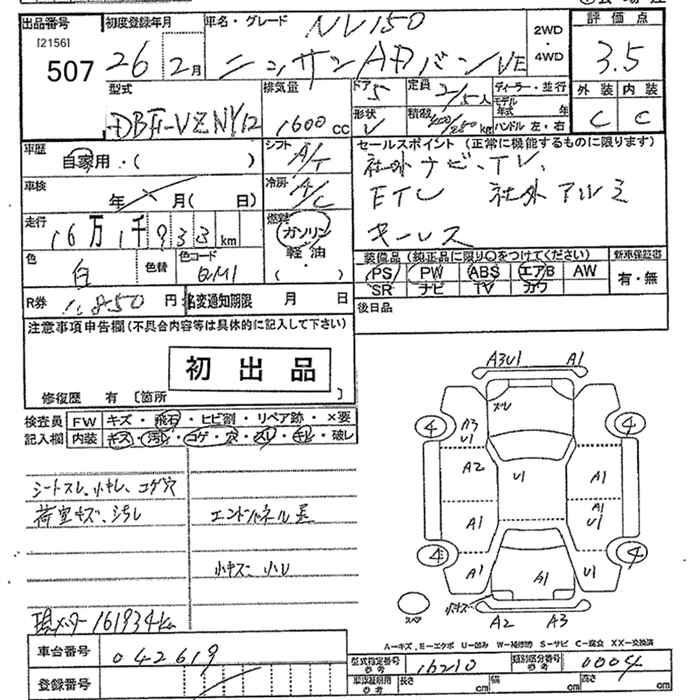 出品番号 初度登録年月 車名・グレード NV150 2WD 評価点
[2156] 507 26 2月 ニッサンADバン VE 4WD 3.5
型式 排気量 ドア 5 定員 2/5人 ディーラー・並行 外装 内装
DBF-VZNY12 1600cc 形状 V 積載 kg モデル年式 年 ハンドル 左・右 C C
車歴 自家用・( ) シフト A/T セールスポイント (正常に機能するものに限ります)
社外ナビ、TV、
車検 年 月( 日) 冷房 A/C ETC 社外アルミ
走行 16万1千933km 燃料 ガソリン・軽油・( ) キーレス
色 白 色替 色コード QM1 装備品 (純正品に限り○をつけてください) 新車保証書
PS PW ABS エアB AW 有・無
SR ナビ TV カワ
R券 11,850円 名変通知期限 月 日 後日品
注意事項申告欄(不具合内容等は具体的に記入して下さい)
初出品
修復歴 有 [箇所 ]
検査員記入欄 FW キズ・飛石・ヒビ割・リペア跡・×要
内装 キズ・汚レ・コゲ・穴・スレ・キレ・破レ
シートスレ、小キレ、コゲ穴
荷室キズ、汚レ エンドパネル
小キズ 小レ
現メーター161934km
A3U1 A1
スレ
4 4
A3
U1
A2 U1 A1
A1 A1
U1
4 4
A1 A1 U1
スペア 小キズ A2 A3
A-キズ、E-エクボ U-凹み W-補修跡 S-サビ C-腐食 XX-交換済
車台番号 042619 型式指定番号 参考 16210 類別区分番号 参考 0004
登録番号 車庫証明用 参考 長さ cm 幅 cm 高さ cm